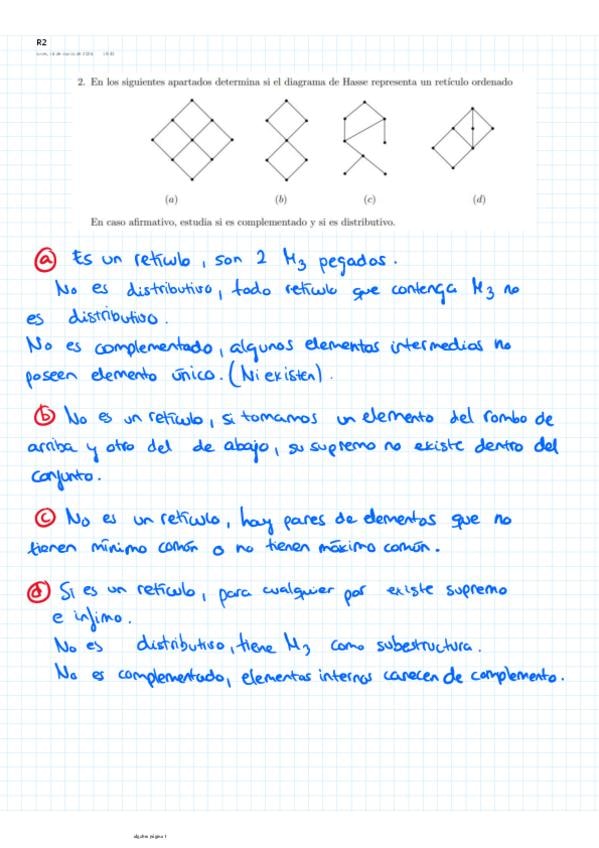 R2
2. En los siguientes apartados determina si el diagrama de Hasse representa un retículo ordenado
(a) (b) (c) (d)
En caso afirmativo, estudia si es complementado y si es distributivo.
a) Es un retículo, son 2 M3 pegados.
No es distributivo, todo retículo que contenga M3 no
es distributivo.
No es complementado, algunos elementos intermedios no
poseen elemento único. (Ni existen).
b) No es un retículo, si tomamos un elemento del rombo de
arriba y otro del de abajo, su supremo no existe dentro del
conjunto.
c) No es un retículo, hay pares de elementos que no
tienen mínimo común o no tienen máximo común.
d) Si es un retículo, para cualquier par existe supremo
e ínfimo.
No es distributivo, tiene M3 como subestructura.
No es complementado, elementos internos carecen de complemento.
algebra página 1